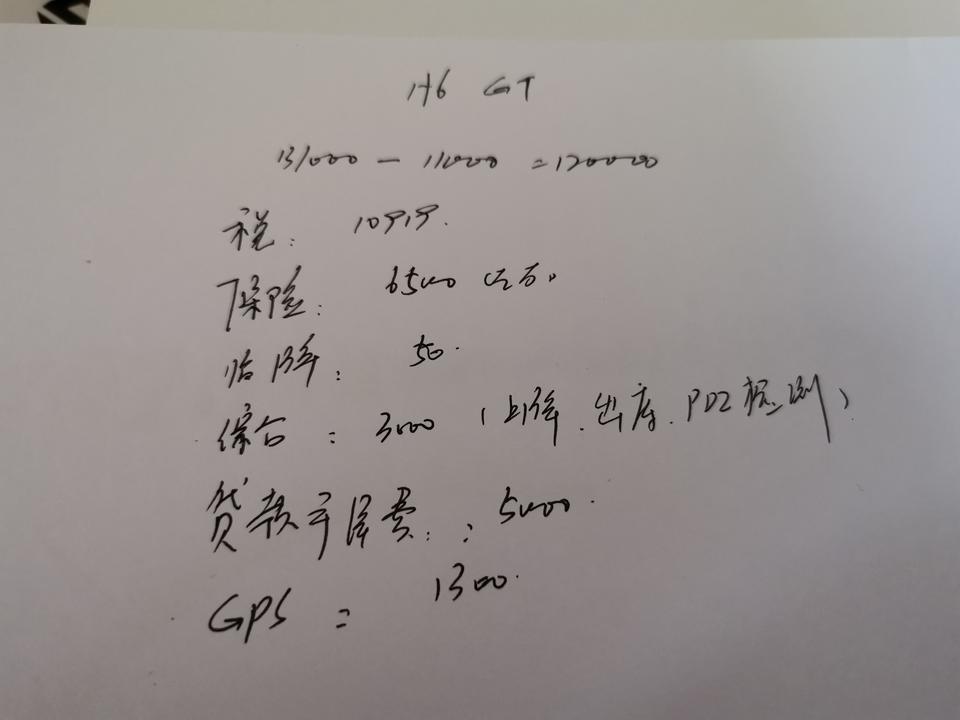 H6 GT
131000 - 11000 = 120000
税: 10919.
保险: 6500
临牌: 50.
综合: 3000 (上牌、出库、PDI检测)
贷款手续费: 5000.
GPS: 1300.